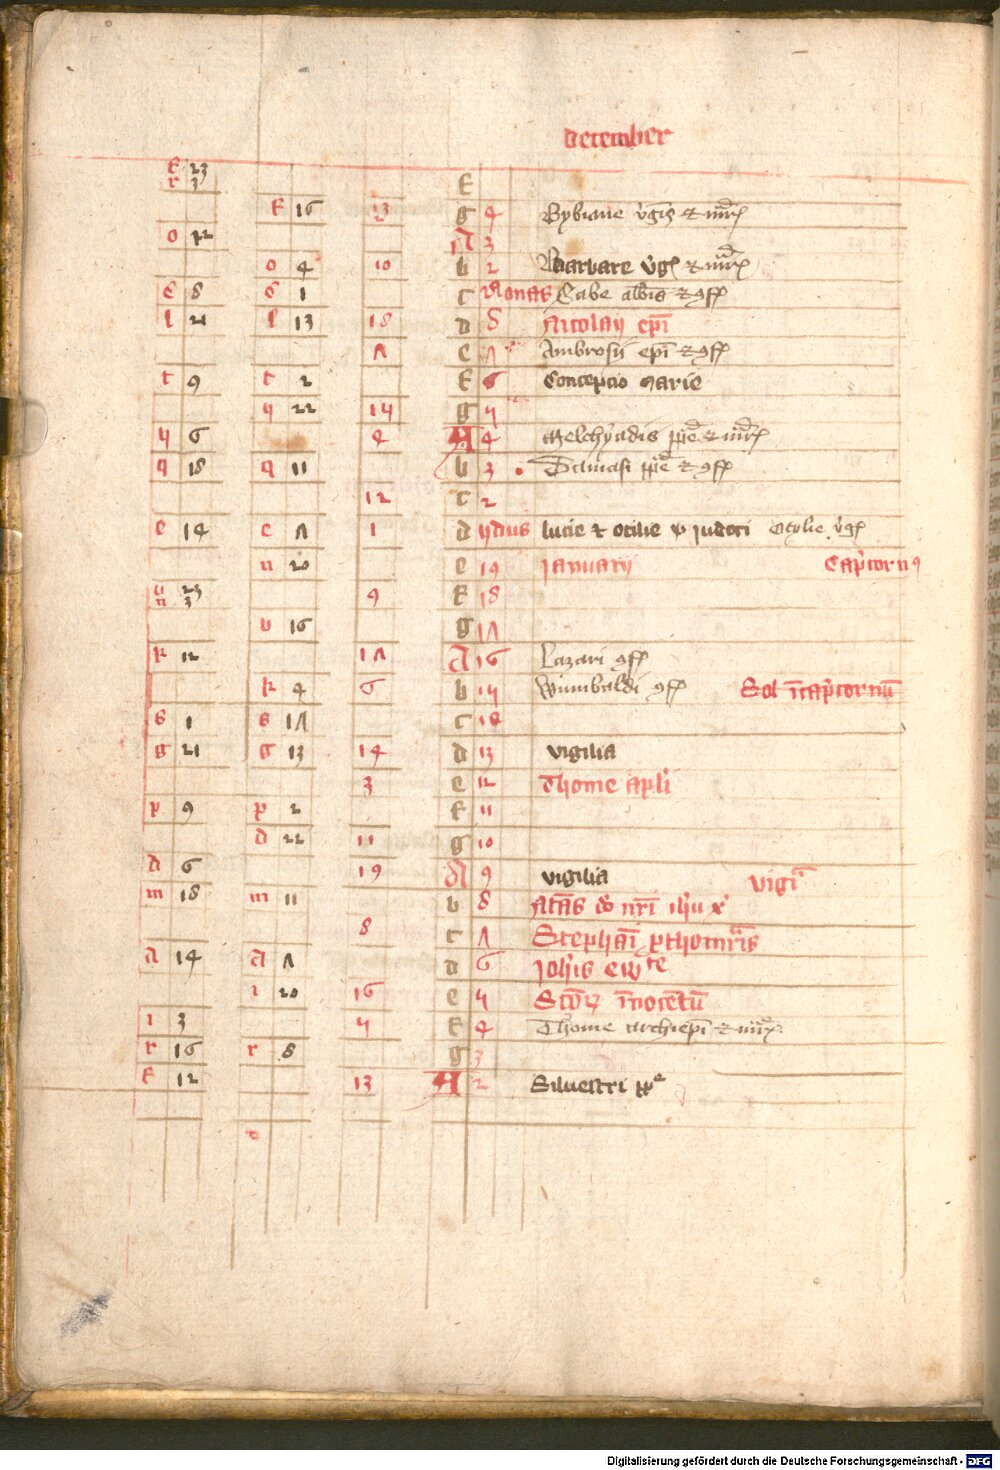 december
k 23 r 3 E
k 16 13 g 4 Bybiane v̄gīs et m̄rꝭ
o 12 A 3
o 4 10 b 2 Barbare v̄gꝭ et m̄rꝭ
c 8 c 1 c Nonas Sabe abb̄is et ꝯff
l 21 l 13 18 d 8 Nicolay ep̄i
Λ e Λ Ambrosij ep̄i et ꝯff
t 9 t 2 f 6 Concepcio marie
y 22 14 g 4
y 6 4 A 4 Melchiadis pp̄e et m̄rꝭ
q 18 q 11 b 3 Damasi pp̄e et ꝯff
12 c 2
e 14 e Λ 1 d ydus lucie et otilie Otylie v̄gꝭ
n 20 e 19 Januarij Cap̄icornꝰ
u 23 n 3 9 f 18
v 16 g 1Λ
k 12 1Λ A 16 Lazari ꝯff
k 4 6 b 14 Wunibaldi ꝯff Sol īcap̄icornū
s 1 s 1Λ c 18
g 21 g 13 14 d 13 vigilia
3 e 12 Thome apl̄i
p 9 p 2 f 11
d 22 11 g 10
d 6 19 A 9 vigilia vigiᵃ
m 18 m 11 b 8 Nat̄s dō nr̄i ih̄u x̄
8 c Λ Stephāi ꝓthom̄ris
a 14 a Λ d 6 Joh̄is ewᵗᵉ
i 20 16 e 4 Sctōrꝝ īnocētū
i 3 4 f 4 Thome archiep̄i et m̄rꝭ
r 16 r 8 g 3
f 12 13 A 2 Silvestri pp̄ᵉ
Digitalisierung gefördert durch die Deutsche Forschungsgemeinschaft - DFG